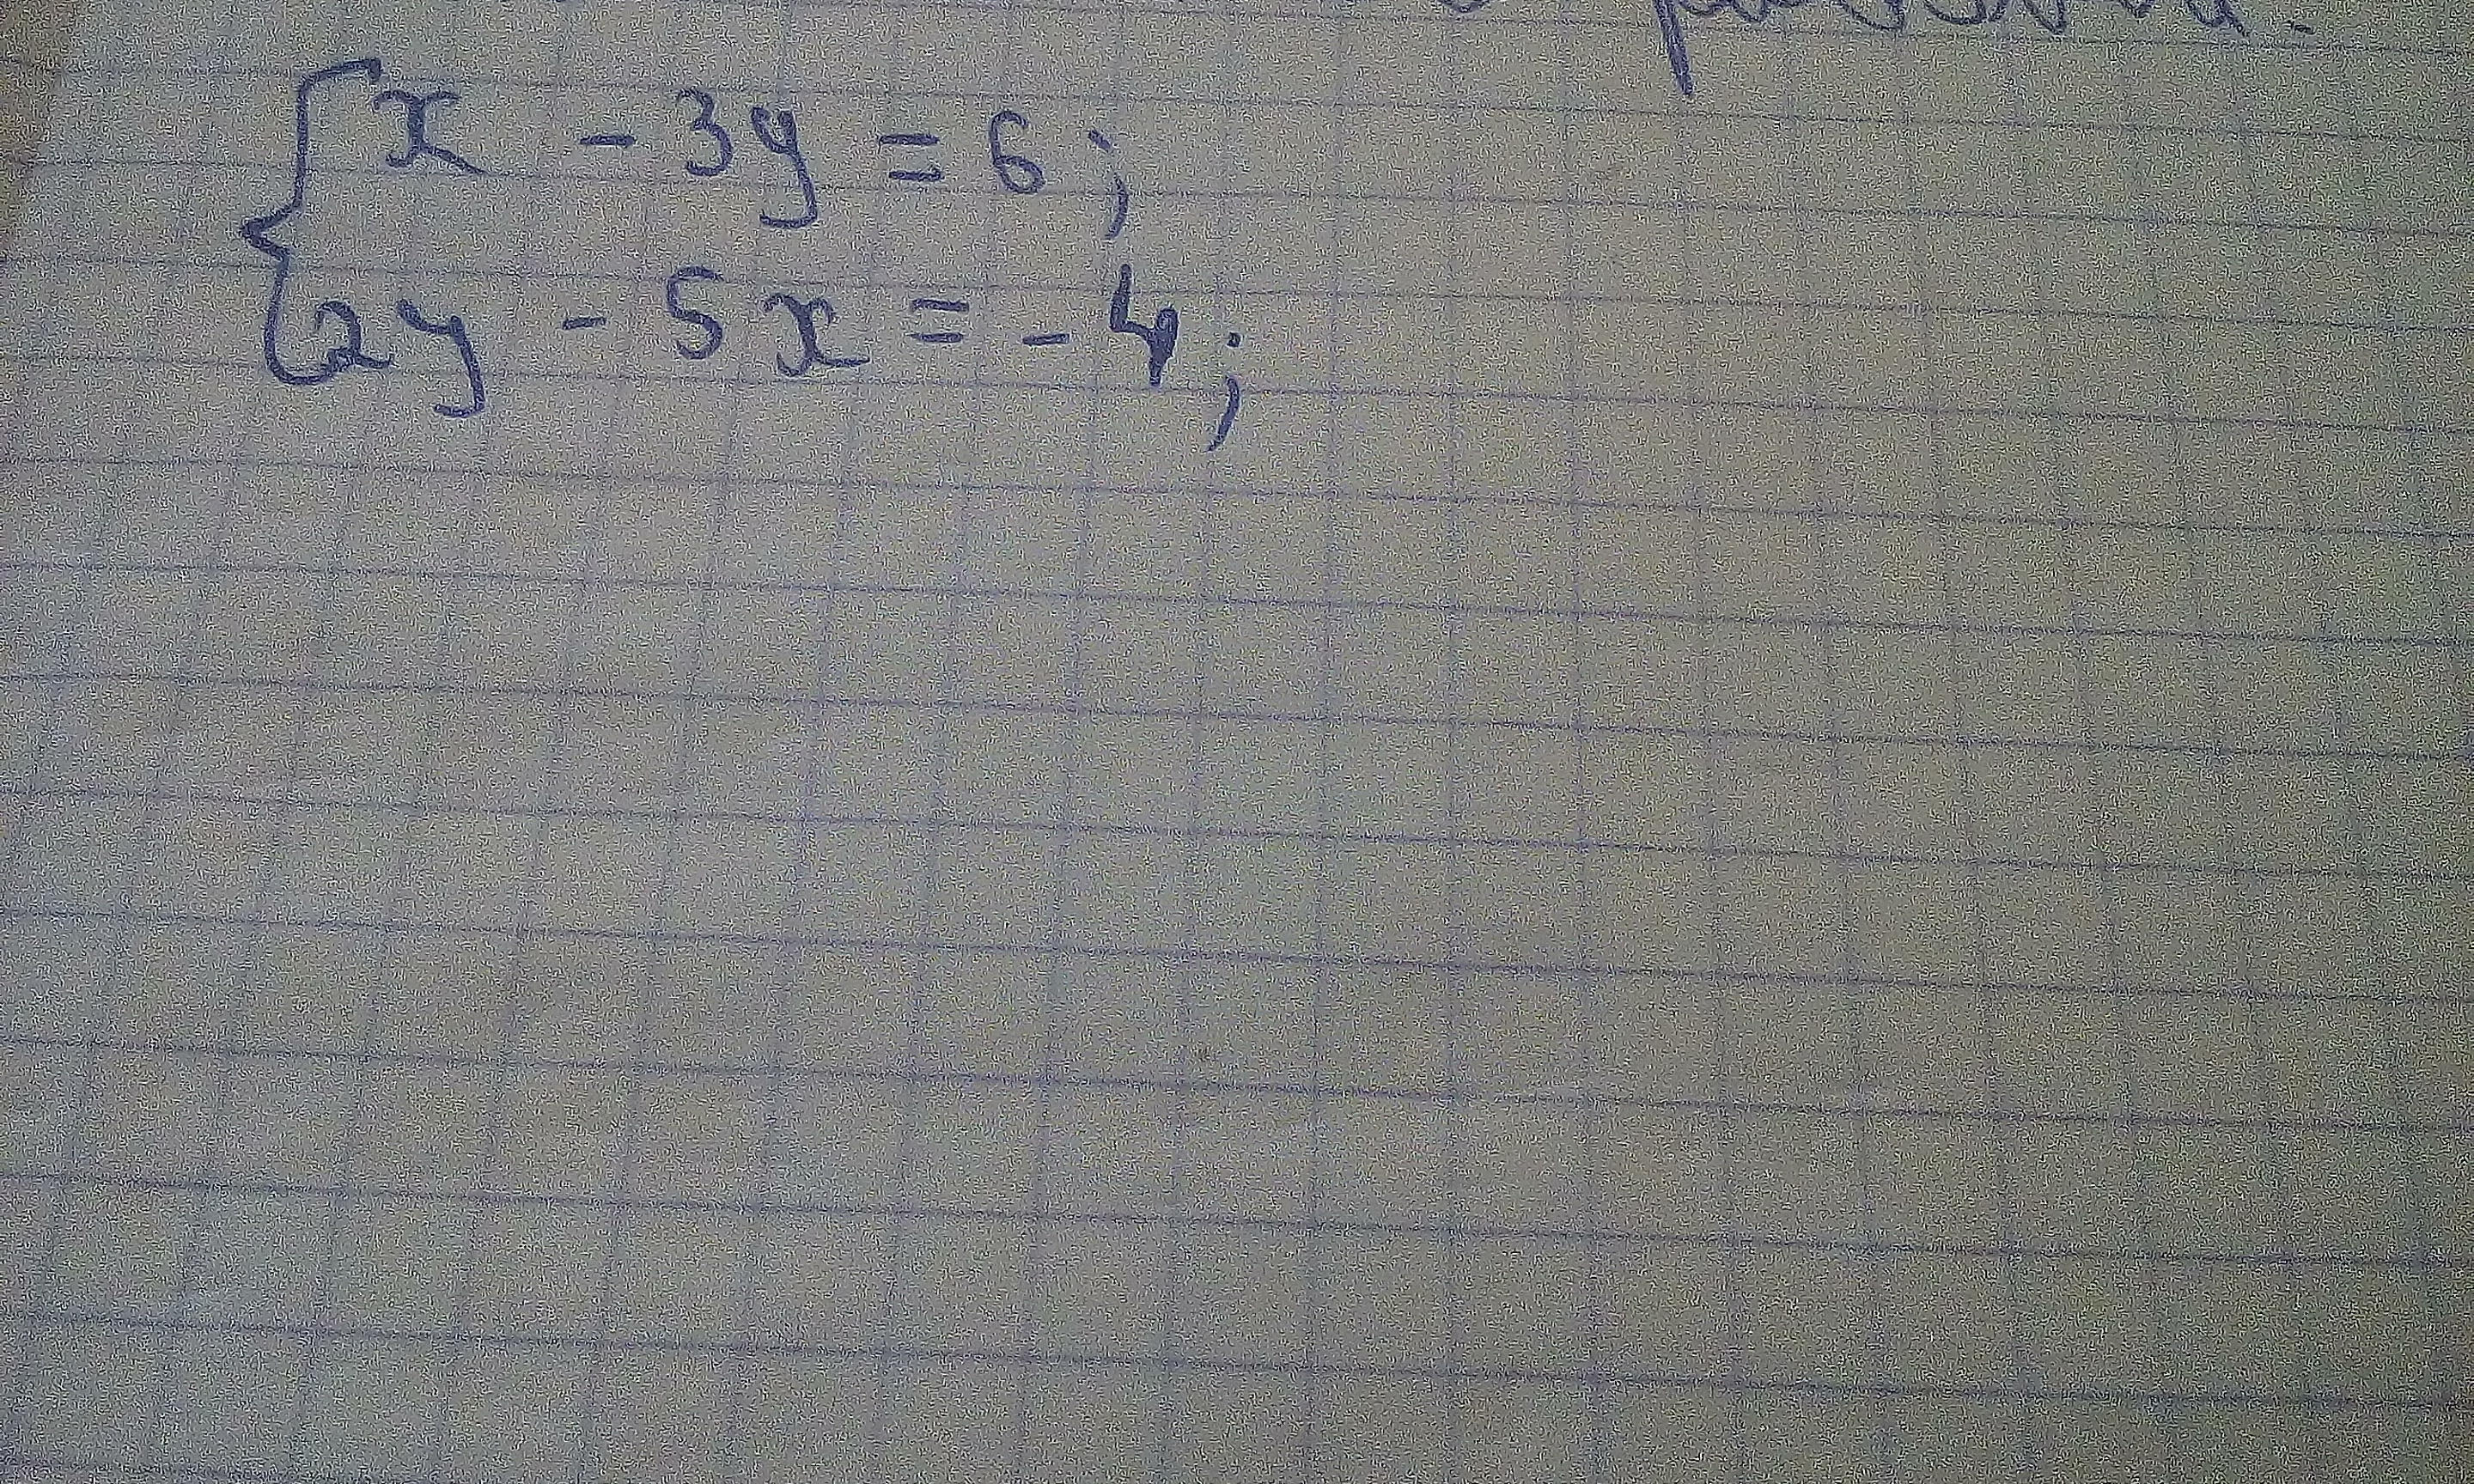 x - 3y = 6;
2y - 5x = -4;